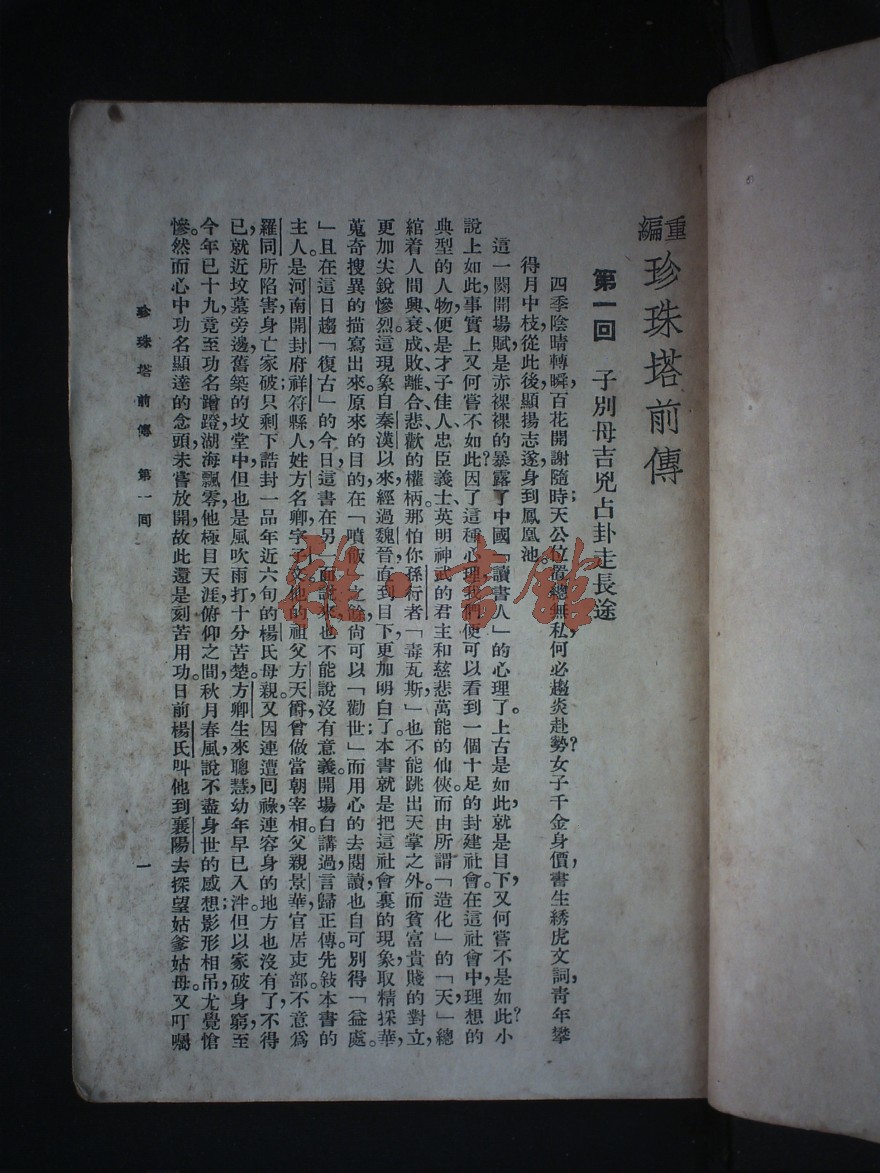 重編 珍珠塔前傳
第一回 子別母吉兇占卦走長途
四季陰晴轉瞬,百花開謝隨時;天公位置總無私,何必趨炎赴勢?女子千金身價,書生綉虎文詞,靑年攀
得月中枝,從此後,顯揚志遂,身到鳳凰池。
這一闋開場賦,是赤裸裸的暴露了中國「讀書人」的心理了。上古是如此,就是目下,又何嘗不是如此?小
說上如此,事實上又何嘗不如此?因了這種心理,我們便可以看到一個十足的封建社會。在這社會中,理想的
典型的人物,便是才子、佳人、忠臣、義士、英明神武的君主和慈悲萬能的仙俠。而由所謂「造化」的「天」總
綰着人間興、衰、成、敗、離、合、悲、歡的權柄。那怕你孫行者「毒瓦斯」也不能跳出天掌之外。而貧富貴賤的對立,
更加尖銳慘烈。這現象自秦漢以來,經過魏晉直到目下,更加明白了。本書就是把這社會裏的現象,取精採華,
蒐奇搜異的描寫出來。原來的目的,在「噴飯」之餘,尙可以「勸世」而用心的去閱讀,也自可別得「益處。
」且在這日趨「復古」的今日,這書在另一面說來,也不能說沒有意義。開場白講過,言歸正傳。先敍本書的
主人,是河南開封府祥符縣人,姓方名卿,字子文,他的祖父方天爵,曾做當朝宰相。父親景華,官居吏部。不意爲
羅同所陷害,身亡家破;只剩下誥封一品年近六旬的楊氏母親。又因連遭囘祿,連容身的地方也沒有了,不得
已就近坟墓旁邊,舊築的坟堂中,但也是風吹雨打,十分苦楚。方卿生來聰慧,幼年早已入泮。但以家破身窮,至
今年已十九,竟至功名蹭蹬,湖海飄零,他極目天涯,俯仰之間,秋月春風,說不盡身世的感想;影形相吊,尤覺愴
慘。然而心中功名顯達的念頭,未嘗放開,故此還是刻苦用功。日前楊氏叫他到襄陽去探望姑爹姑母。又叮囑
珍珠塔前傳 第一回 一
雜·書館